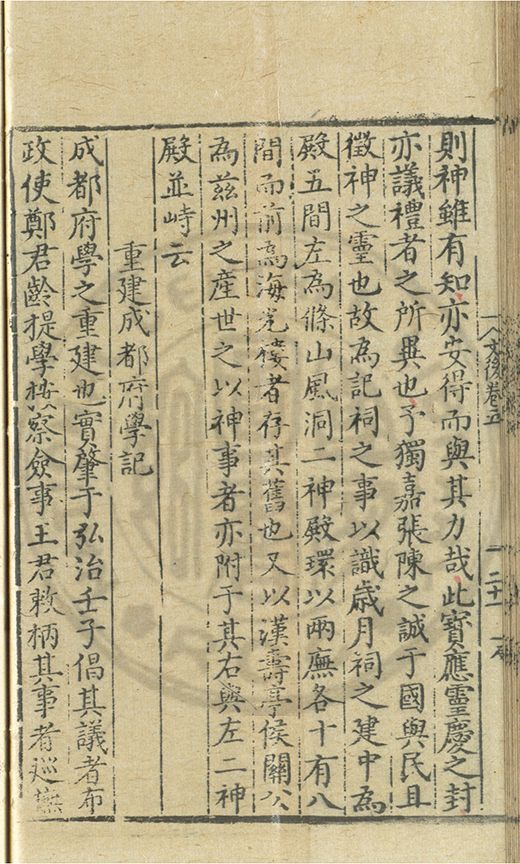 則神雖有知亦安得而與其力哉此寶應靈慶之封
亦議禮者之所異也予獨嘉張陳之誠于國與民且
徵神之靈也故為記祠之事以識歲月祠之建中為
殿五間左為條山風洞二神殿環以兩廡各十有八
間而前為海光樓者存其舊也又以漢壽亭侯關公
為茲州之産世之以神事者亦附于其右與左二神
殿並峙云
重建成都府學記
成都府學之重建也實肇于弘治壬子倡其議者布
政使鄭君齡提學按察僉事王君敕柄其事者巡撫
文後卷五
二十一